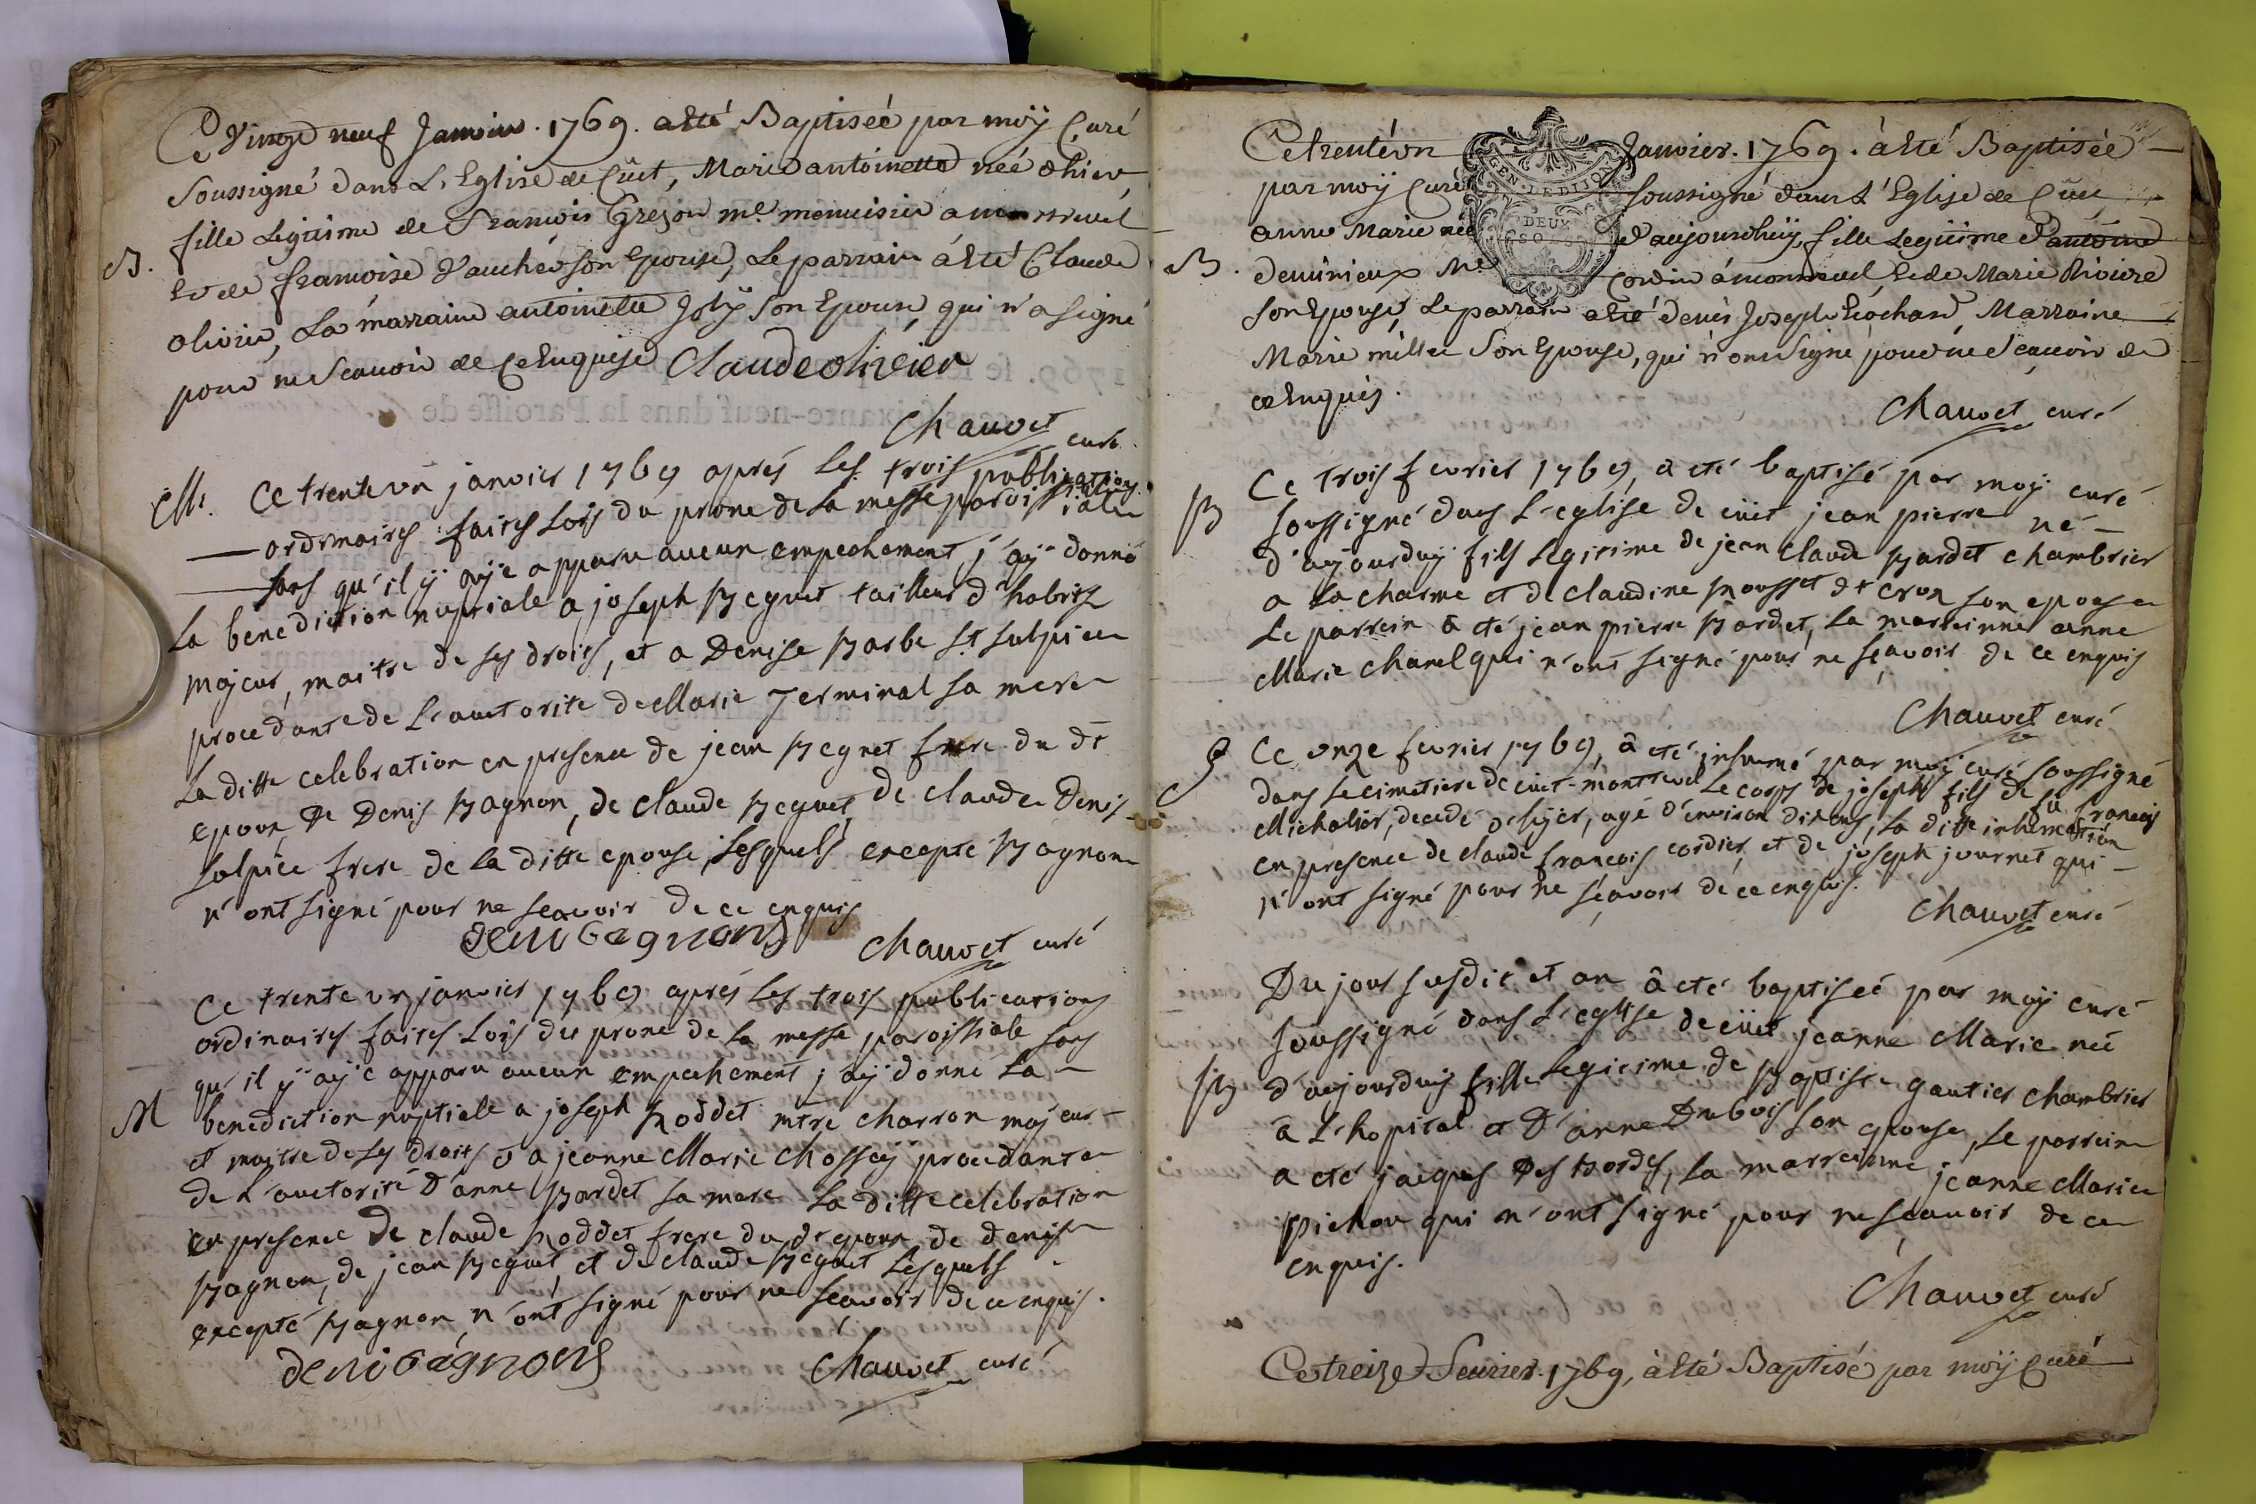 Ce Vingt neuf Janvier. 1769. a Eté Baptiseé par moÿ Curé
Soussigné dans L'Eglise de Cuët, Marie antoinette neé d'hier
fille Legitime de François Grejon me. menuisier a montrevel
B. Et de françoise Vauché son Epouse, Le parrain á Eté Claude
olivier, La marraine antoinette Joly Son Epouse, qui n'a signé
pour ne Scauoir de Ce Enquise Claude olivier
Chauvet curé
M. Ce trente un janvier 1769 aprés Les trois publications
ordinaires faites Lors du prone de La messe paroissiale
sans qu'il ÿ aÿe apparu aucun empechement j'aÿ donné
La benediction nuptiale a joseph Beguet tailleur d'habits
majeur, maitre de ses droits, et a Denise Barbe St. Sulpice
procedante de L'auctorité de Marie Terminal sa mere
La ditte celebration en presence de jean Beguet frere du dt
epoux, De Denis Bagnon, de claude Beguet, de claude Denis
Sulpice frere de La ditte epouse, Lesquels excepté Bagnon
n'ont signé pour ne scavoir de ce enquis
deni bagnons
Chauvet curé
Ce trente un janvier 1769 aprés Les trois publications
ordinaires faites Lors du prone de La messe paroissiale sans
qu'il ÿ aÿe apparu aucun empechement j'aÿ donné La
M benediction nuptiale a joseph Poddet mtre charron majeur
et maitre de ses droits et a jeanne Marie Chossaÿ procedante
de L'auctorité D'anne Bardet sa mere La ditte celebration
en presence de claude Poddet frere du dt epoux de denis
Bagnon, de jean Beguet et de claude Beguet Lesquels
excepté Bagnon n'ont signé pour ne scavoir de ce enquis.
deni bagnons
Chauvet curé
Ce trente un Janvier. 1769. á Eté Baptiseé
par moÿ Curé Soussigné dans L'Eglise de Cuët
GEN. LE DIJON
DEUX SOLS
anne Marie neé d'aujourdhuÿ, fille Legitime d'antoine
B. deminieux Me Cordier á montrevel, et de Marie Riviere
Son Epouse, Le parrain a Eté denis Joseph Marraine
Marie millet Son Epouse, qui n'ont Signé pour ne Scauoir de
ce Enquis.
Chauvet curé
Ce trois fevrier 1769, a eté baptisé par moÿ curé
B soussigné dans L'eglise de cuët jean pierre né
d'aujourduÿ fils Legitime de jean claude Bardet chambrier
a La charme et de claudine Pousset de cron son epouse
Le parrein a eté jean pierre Bardet, La marreinne anne
Marie Chanel qui n'ont signé pour ne sçavoir de ce enquis
Chauvet curé
Ce onze fevrier 1769, a eté inhumé par moÿ curé soussigné
dans Le cimetiere de cuët-montrevel Le corps de joseph fils de fu francois
Michalier, decedé agé d'environ dix ans, La ditte inhumation
en presence de claude francois cordier, et de joseph journet qui
n'ont signé pour ne sçavoir de ce enquis.
Chauvet curé
Du jour susdit et an a eté baptiseé par moÿ curé
soussigné dans L'eglise de cuët jeanne Marie neé
B d'aujourduÿ fille Legitime de Baptiste gautier chambrier
a L'hopital et D'anne Dubois son epouse, Le parrein
a eté jacques Des bordes, La marreinne jeanne Marie
Pichon qui n'ont signé pour ne sçavoir de ce
enquis.
Chauvet curé
Ce treize Feurier. 1769, á Eté Baptisé par moÿ Curé